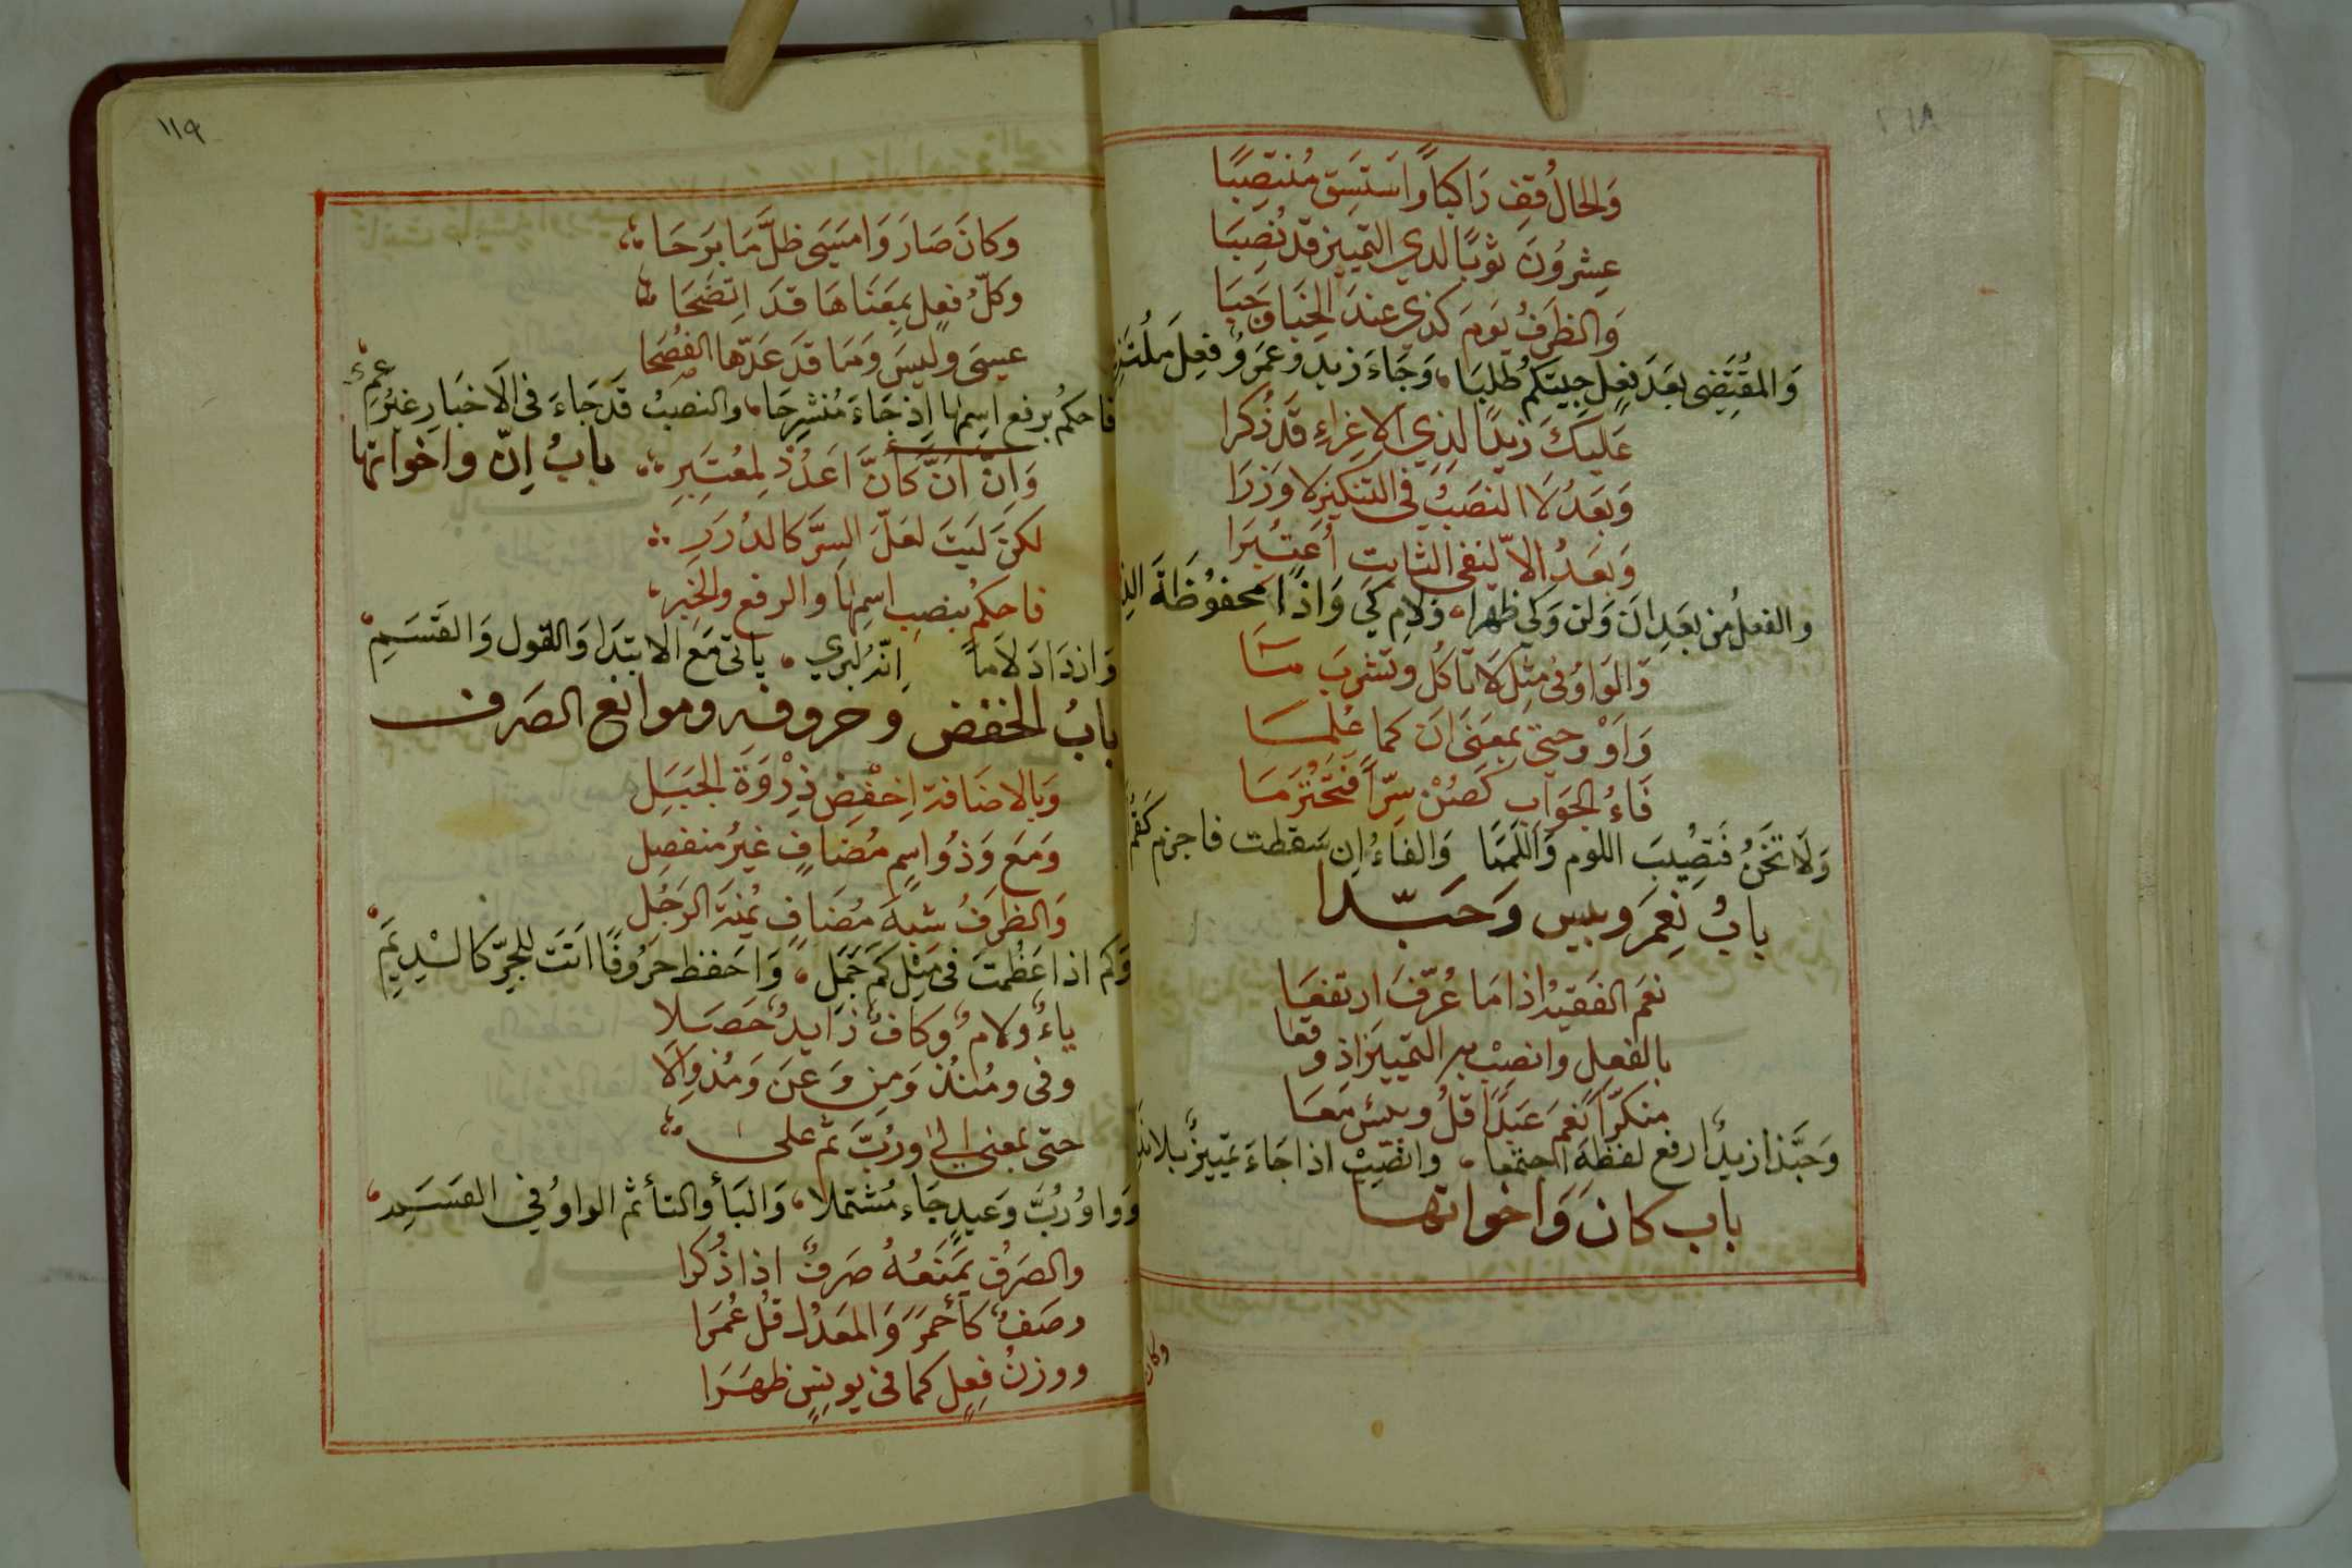 وَالحَالُ قِفِ رَاكبًا وَاستَبِق مُنتَصِبًا
عِشرُونَ ثَوبًا لدي التمييز قد نُصِبَا
وَالظرفُ يَومَ كذي عندَ الخِبَا وَجَبَا
وَالمُقتَضِى بعَدَ فِعلِ جِيتكم طَلبَا، وَجَاءَ زيد وعَمروٌ فِعلَ مُلتَزِ
عَليكَ زيدًا لذي الاغراءِ قَد ذُكرا
وَبَعدُ لَا النصَبُ في التنكيز لاوَزَرَا
وَبعَدُ الاّ لنفى الثابت اُعتُبَرا
والفعلُ مِن بعَدِ اَن وَلن وَكي ظهرا، ولام كي وَاذًا محفوُظَةَ
وَالوَاوُ فى مثِل لَا تاكل وتَشرِبَ مَا
وَاَوْ وحتي بمعنَى اَن كما عُلِمَا
فَاءُ الجَوَاب كَصُنْ سِرّاً فتحتُرمَا
وَلَا تَخُنُ فَتصُيبَ اللوم وَاَللَمَمَا وَالفاءُ اِن سَقطت فاجزم كَقُمْ
بابُ نِعمَ وبيس وَحَبّذا
نعَم الفَقيهُ اذا مَا عُرّفَ ارتفعَا
بالفعلِ وانصِبْ به التمييَز اذ وقعَا
منكرًا نِعَم عَبدًا قلُ وبيئس مَعَا
وَحَبَّذا زيدٌ ارفع لفظهَ اجتمعا، وانصِبْ اذا جَاءَ تمَييزٌ بلا
باب كانَ وَاخواتها
وكان
١١٩
وَكانَ صَارَ وَامسَىَ ظلَّ مَا بَرحَا
وَكلّ فعِل بمَعنَاهَا قَدَ اِتضَحَا
عيسَى وليسَ وَمَا قَد عَدّها الفُصَحا
فاحكمُ برفع اسِمِها اِذ جَاءَ مُنشرِحَا، والنصبُ قَد جَاءَ فى الَاخبَارِ غيرُ عِمِ
بابُ اِنّ واخواتها
وَاِنّ اَنّ كَانّ اعَدُد لمعُتَبِرِ
لكنَ لَيتَ لعَلّ السِرَّ كالدُرَرِ
فاحكمُ بنصبِ اسِمِها والرفع والخبِر
وَازدَادَ لاَماً اِنّهُ لبري، ياتى مَع الابتدَا وَالقول وَالقَسَمِ
بابُ الخفض وحروفه وموانع الصَرف
وَبالاضَافة اِخْفِض ذِرْوَةَ الجَبَلِ
وَمَع وَذُو اسِم مُضَافٍ غيرُ منفصِل
وَالظرفُ شبهَ مُضَافٍ يُمنَة الرجُل
وَكَم اذا عَظُمتَ فى مثِل كم جَمَل، وَاحَفظ حرُوفًا اتَت للجِرّ كالسْدِيَمِ
ياءٌ ولامٌ وكافٌ زايدٌ حَصَلا
وفى ومُنذ وَمِن وَعَن وَمُذ والَا
حتى بمعنى الىٰ ورُبَّ ثم علىٰ
وَواوُ رُبَّ وَعَيدٍ جَاء مُشتملا، وَالبَأ والتأ ثم الواوُ في القسَمِ
والصَرفُ يَمنَعُهُ صَرفٌ اذا ذُكرا
وصَفٌ كَأحمَرَ وَالمعَدُل قُل عُمَرا
ووزنُ فِعِلٍ كما فى يونِسٍ ظهَرَا